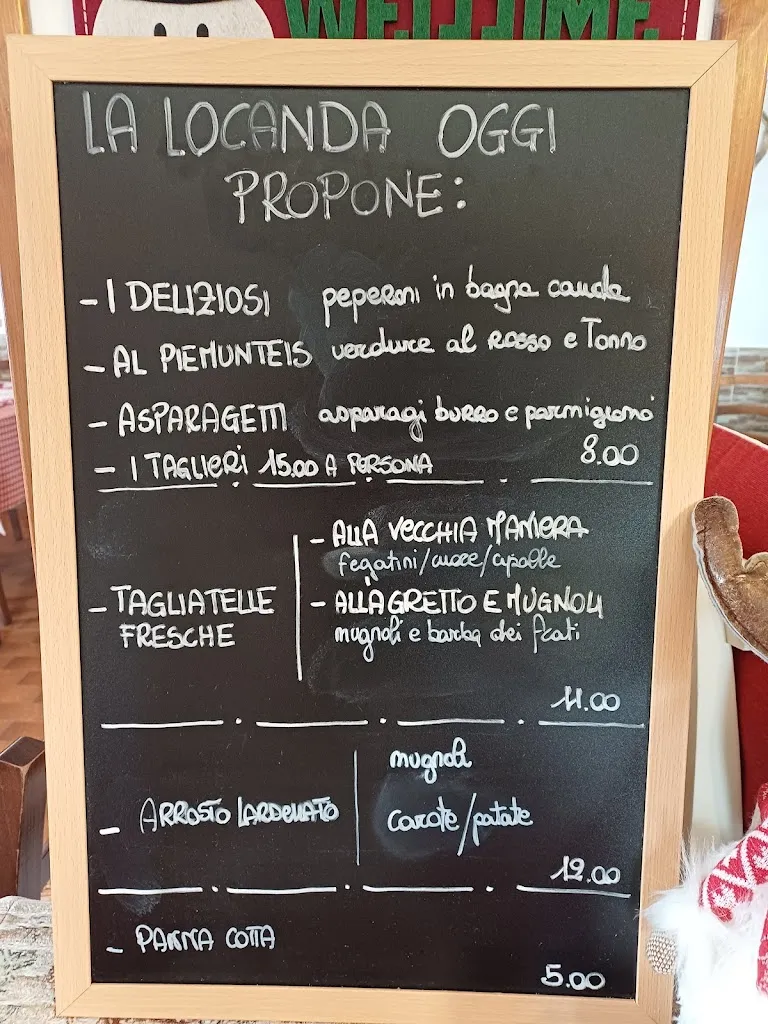 WELCOME
LA LOCANDA OGGI
PROPONE:
- I DELIZIOSI peperoni in bagna cauda
- AL PIEMUNTEIS verdure al rosso e Tonno
- ASPARAGETTI asparagi burro e parmigiano
8.00
- I TAGLIERI 15.00 A PERSONA
- TAGLIATELLE
FRESCHE
- ALLA VECCHIA MANIERA
fegatini/cuore/cipolle
- ALLAGRETTO E MUGNOLI
mugnoli e barba dei frati
11.00
- ARROSTO LARDELLATO
mugnoli
carote/patate
12.00
- PANNA COTTA
5.00